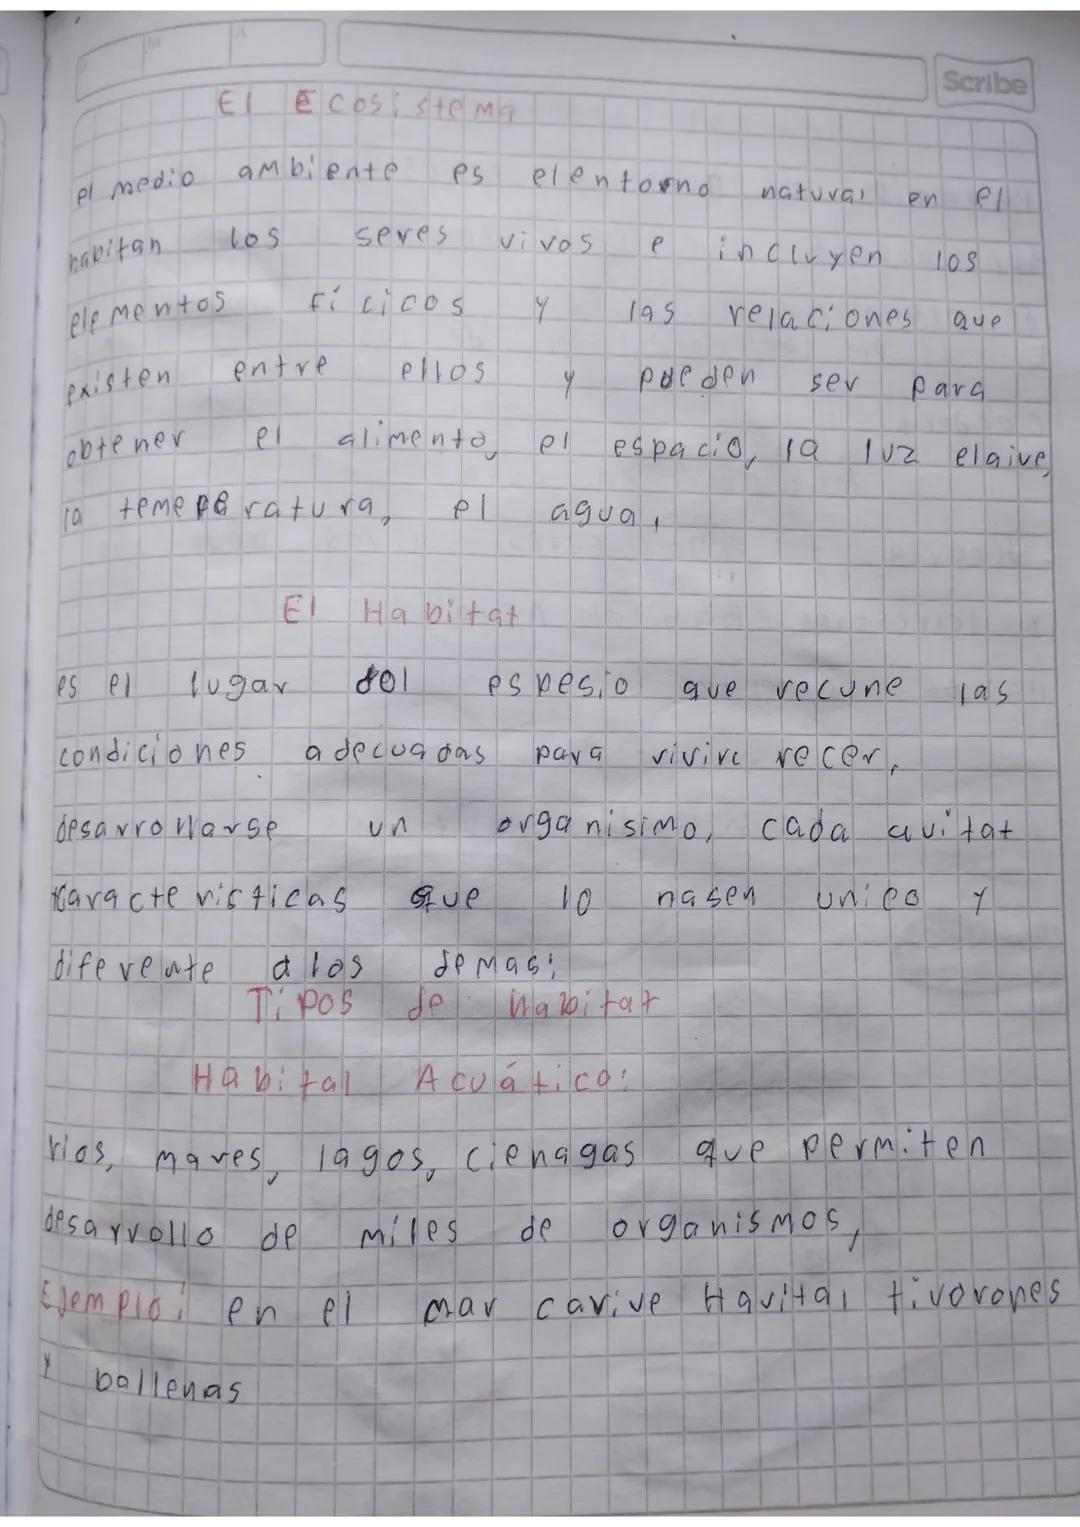 Scribe
El Ecosistema
el medio ambiente es elentorno natural en el
habitan los seres vivos e incluyen los
elementos fícicos y las relaciones que
existen entre ellos y pueden ser para
obtener el alimento, el espacio, la luz elaive,
la temeperatura, el agua,
El Habitat
es el lugar del espesio que recune las
condiciones adecuadas para vivirc recer,
desarrollarse un organisimo, cada avitat
caracteristicas que lo nasen unico y
diferente a los demas;
Tipos de habitat
Habital Acuático:
rios, mares, lagos, cienagas que permiten
desarrollo de miles de organismos,
Ejemplo: en el mar carive Havital tivorones
y ballenas